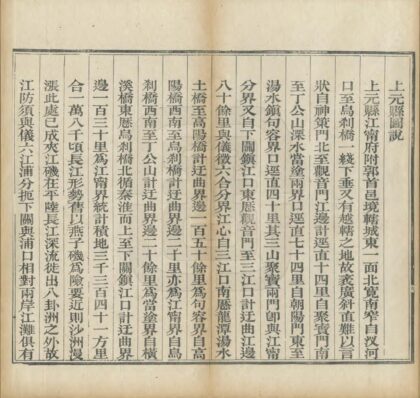 上元縣圖說
上元縣江甯府附郭首邑境轄城東一面北寬南窄自汊河
口至烏刹橋一綫下垂又有越轄之地故袤廣斜直難以言
狀自神策門北至觀音門江邊計逕直十四里自聚寶門南
至丁公山溧水當塗兩界口逕直七十四里自朝陽門東至
湯水鎮句容界口逕直四十里其三山聚寶兩門卽與江甯
分界又自下關鎮江口東歷觀音門至三江口計迂曲江邊
八十餘里與儀徵六合分界江心自三江口南歷龍潭湯水
土橋至高陽橋計迂曲界邊一百五十餘里爲句容界自高
陽橋西至烏刹橋計迂曲界邊二十里亦爲江甯界自烏
刹橋西南至丁公山計迂曲界邊二十餘里爲當塗界自橫
溪橋東歷烏刹橋北循秦淮而上至下關鎮江口計迂曲界
邊一百三十里爲江甯界統計積地三千三百四十一方里
合一萬八千頃長江形勢舊以燕子磯爲險要近則沙洲漫
漲此處已成夾江磯在平陸長江深流徙出八卦洲之外故
江防須與儀六江浦分扼下關與浦口相對兩岸江灘俱有